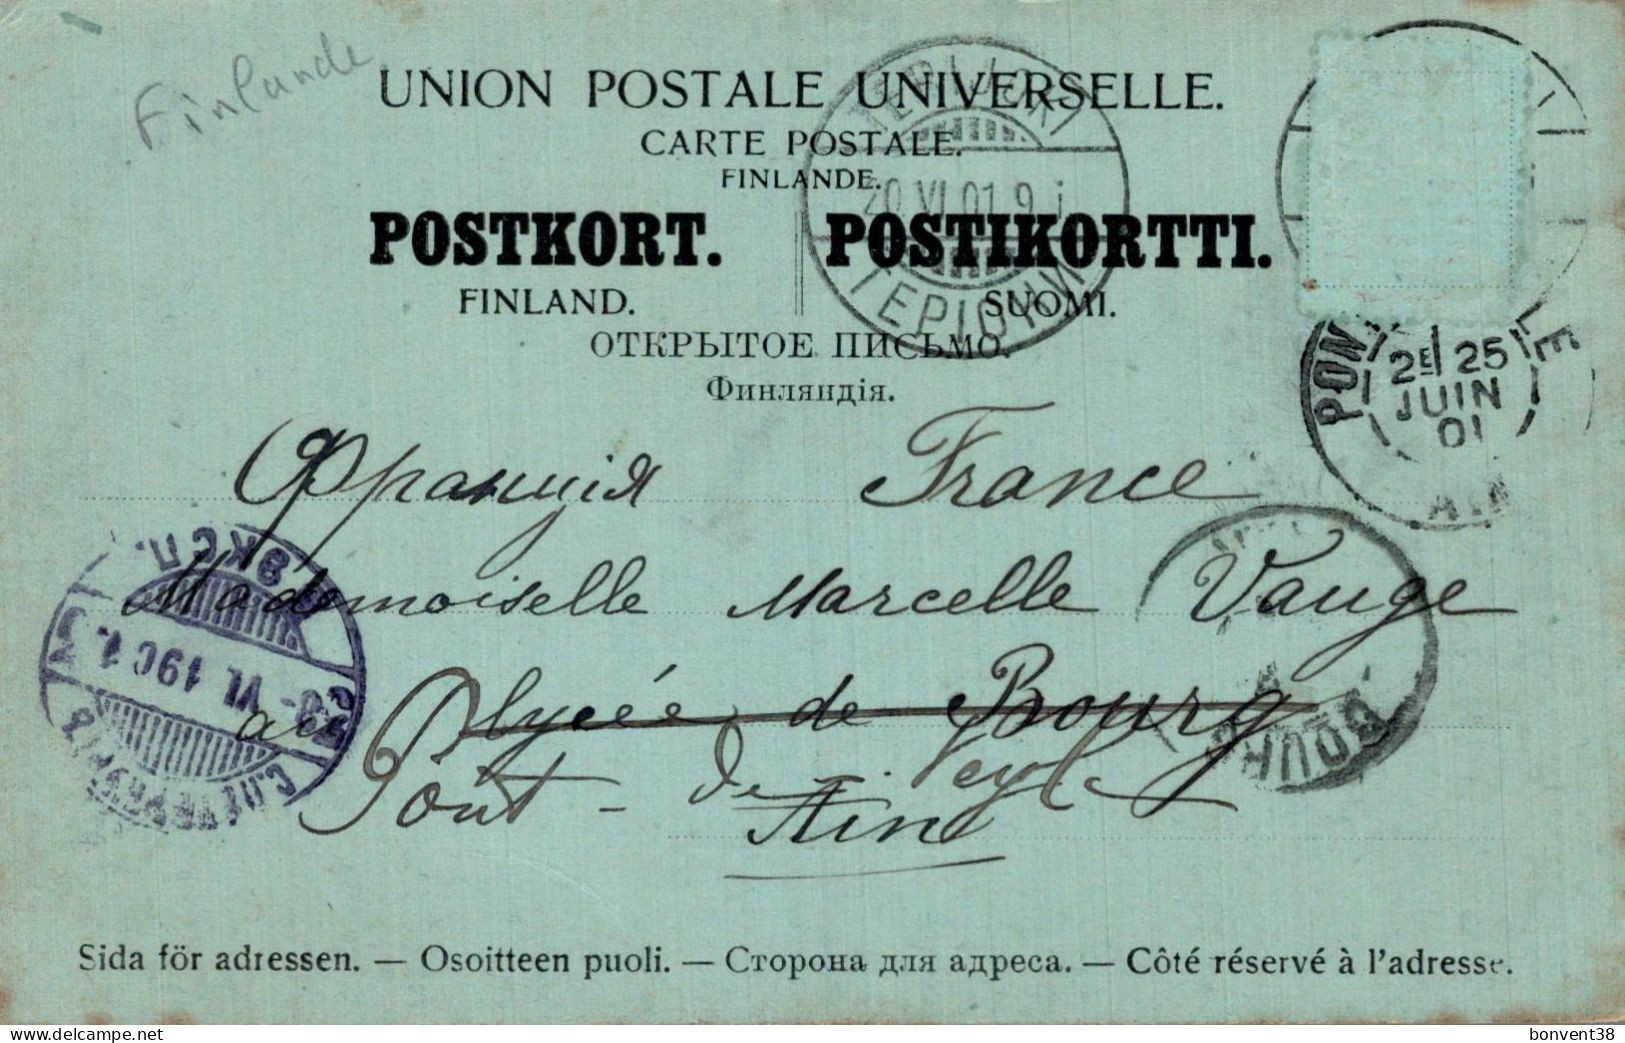 Finlande
UNION POSTALE UNIVERSELLE.
CARTE POSTALE.
FINLANDE.
POSTKORT. POSTIKORTTI.
FINLAND. SUOMI.
ОТКРЫТОЕ ПИСЬМО.
Финляндія.
TERIJOKI
20 VI 01 9 i
ТЕРІОКИ
PON LE
2E 25
JUIN
01
AIN
Франція France
Mademoiselle Marcelle Vauge
au lycée de Bourg
Pont-de-Veyle
Ain
ЭКСП.
VI. 1901.
С.ПЕТЕРБУРГЪ
BOURG
Sida för adressen. — Osoitteen puoli. — Сторона для адреса. — Côté réservé à l'adresse.
bonvent38